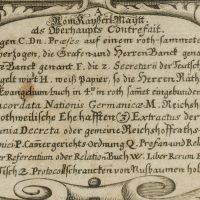 A
Röm Kayserl. Maÿtt.
als Überhaupts Contrefait.
gen C. Dn. Præses auf einem roth sammete
berzogen, die Grafen und Herren Banck
e Banck genant F. die 2. Secretarii der Teutsch
gelt wirt H. weiß Papier, so die Herren Räth
Evangelium buch in 4.to in roth samet eingebunden
ncordata Nationis Germanicæ M. Reichsh
rothweilische Ehehafften (3) Extractus der
nia Decreta oder gemeine Reichshoffraths
nici P. Camergerichts Ordnung Q. Profan und Rel
er Referentum oder Relation Buch W. Liber Rerum E
Tisch 2 Protocollschrancken von Nusbaumen hol